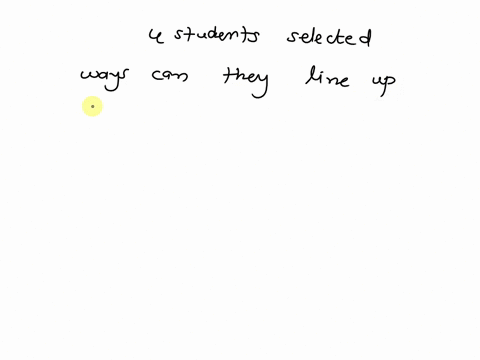 4 students selected
ways can they line up